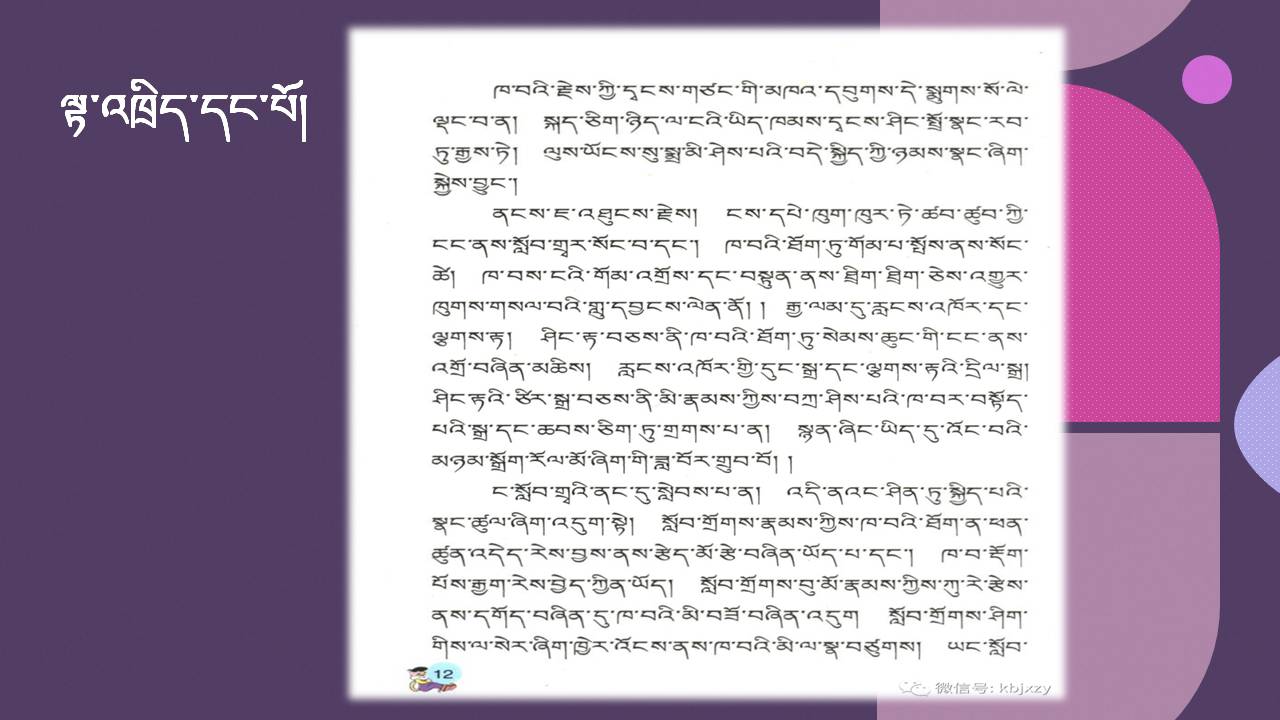 ལྟ་འཁྲིད་དང་པོ།
ཁ་བའི་རྗེས་ཀྱི་དྭངས་གཙང་གི་མཁའ་དབུགས་དེ་སྨུགས་སོ་ལེ་
ལྡང་བ་ན། སྐད་ཅིག་ཉིད་ལ་ངའི་ཡིད་ཁམས་དྭངས་ཤིང་སྤྲོ་སྣང་རབ་
ཏུ་རྒྱས་ཏེ། ལུས་ཡོངས་སུ་སྨྲ་མི་ཤེས་པའི་བདེ་སྐྱིད་ཀྱི་ཉམས་སྣང་ཞིག་
སྐྱེས་བྱུང་།
ནངས་ཇ་འཐུངས་རྗེས། ངས་དཔེ་ཁུག་ཁུར་ཏེ་ཚབ་ཚུབ་ཀྱི་
ངང་ནས་སློབ་གྲྭར་སོང་བ་དང་། ཁ་བའི་ཐོག་ཏུ་གོམ་པ་སྤོས་ནས་སོང་
ཚེ། ཁ་བས་ངའི་གོམ་འགྲོས་དང་བསྟུན་ནས་ཐྲིག་ཐྲིག་ཅེས་འགྱུར་
ཁུགས་གསལ་བའི་གླུ་དབྱངས་ལེན་ནོ། ། རྒྱ་ལམ་དུ་རླངས་འཁོར་དང་
ལྕགས་རྟ། ཤིང་རྟ་བཅས་ནི་ཁ་བའི་ཐོག་ཏུ་སེམས་ཆུང་གི་ངང་ནས་
འགྲོ་བཞིན་མཆིས། རླངས་འཁོར་གྱི་དུང་སྒྲ་དང་ལྕགས་རྟའི་དྲིལ་སྒྲ།
ཤིང་རྟའི་ཙིར་སྒྲ་བཅས་ནི་མི་རྣམས་ཀྱིས་བཀྲ་ཤིས་པའི་ཁ་བར་བསྟོད་
པའི་སྒྲ་དང་ཆབས་ཅིག་ཏུ་གྲགས་པ་ན། སྙན་ཞིང་ཡིད་དུ་འོང་བའི་
མཉམ་སྒྲོག་རོལ་མོ་ཞིག་གི་ཟླ་བོར་གྲུབ་བོ། །
ང་སློབ་གྲྭའི་ནང་དུ་སླེབས་པ་ན། འདི་ནའང་ཤིན་ཏུ་སྐྱིད་པའི་
སྣང་ཚུལ་ཞིག་འདུག་སྟེ། སློབ་གྲོགས་རྣམས་ཀྱིས་ཁ་བའི་ཐོག་ན་ཕན་
ཚུན་འདེད་རེས་བྱས་ནས་རྩེད་མོ་རྩེ་བཞིན་ཡོད་པ་དང་། ཁ་བ་རྡོག་
པོས་རྒྱག་རེས་བྱེད་ཀྱིན་ཡོད། སློབ་གྲོགས་བུ་མོ་རྣམས་ཀྱིས་ཀུ་རེ་རྩེས་
ནས་དགོད་བཞིན་དུ་ཁ་བའི་མི་བཟོ་བཞིན་འདུག སློབ་གྲོགས་ཤིག་
གིས་ལ་སེར་ཞིག་ཁྱེར་འོངས་ནས་ཁ་བའི་མི་ལ་སྣ་བཙུགས། ཡང་སློབ་
12
微信号: kbjxzy